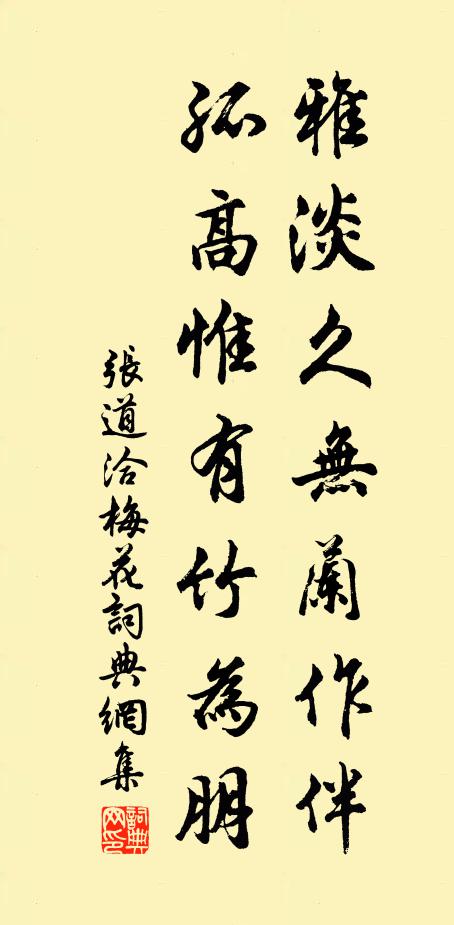 雅淡久無蘭作伴
孤高惟有竹為朋
張道洽梅花詞典網集
詞典網印